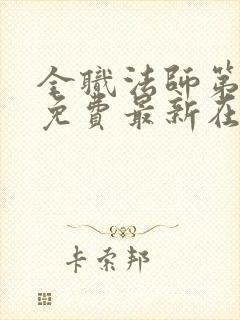 全職法師第
免費最新在
卡索邦